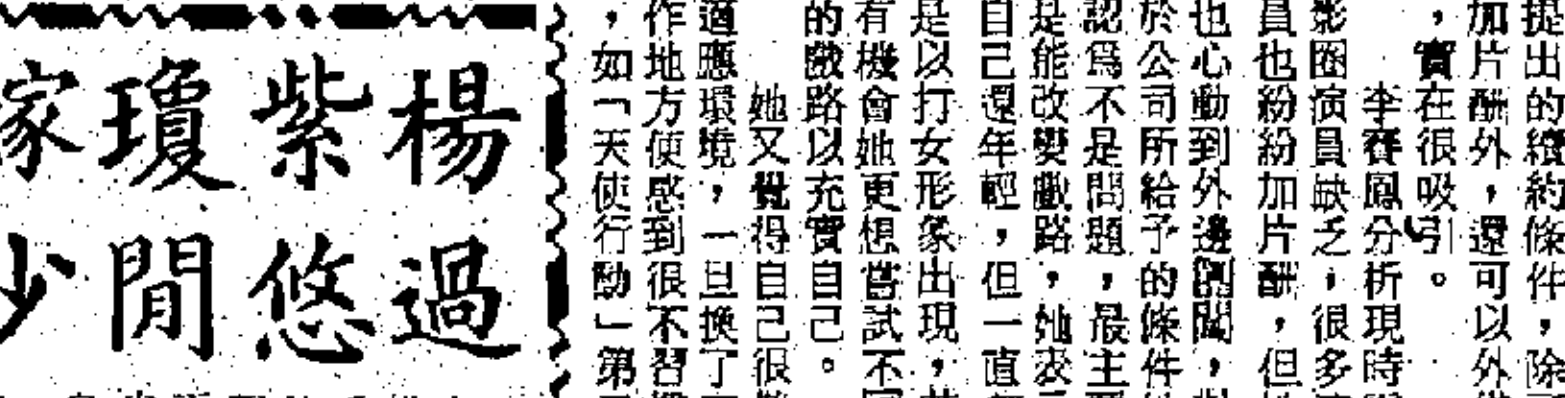 提出的續約條件，除
加片酬外，還可以外
，實在很吸引。
李賽鳳分析現時
影圈演員缺乏，很多
員也紛紛加片酬，但
也心動到外邊闖闖，
於公司所給予的條件
認為不是問題，最主
是能改變戲路，她表
自己還年輕，但一直
是以打女形象出現，
有機會她更想嘗試不
的戲路以充實自己。
她又覺得自己很
適應環境，一旦換了
作地方便感到很不習
，如「天使行動」第
楊紫瓊
過悠閒少